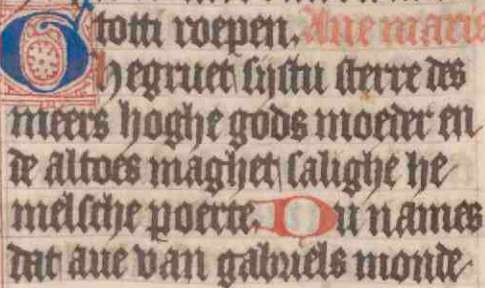 totti roepen. Aue maris
Ghegruet sijstu sterre des
meers hoghe gods moeder en
de altoes maghet salighe he
melsche poerte. Du names
dat aue van gabriels monde